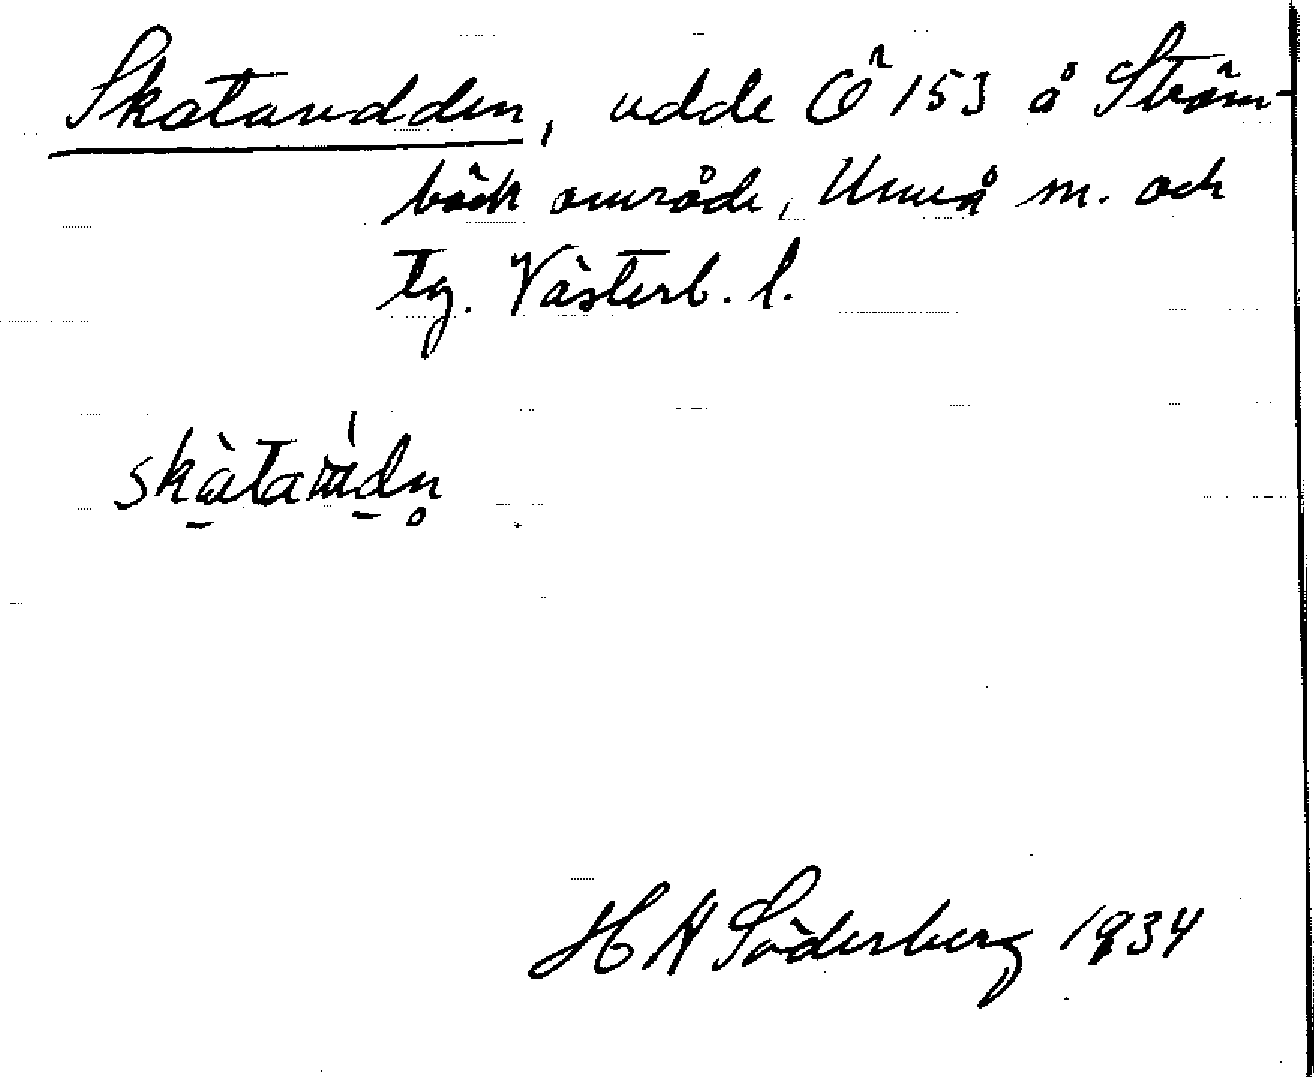 Skataudden, udde Ö 153 å Ström-
bäck område, Umeå m. och
tg. Västerb. l.
H A Söderberg 1934